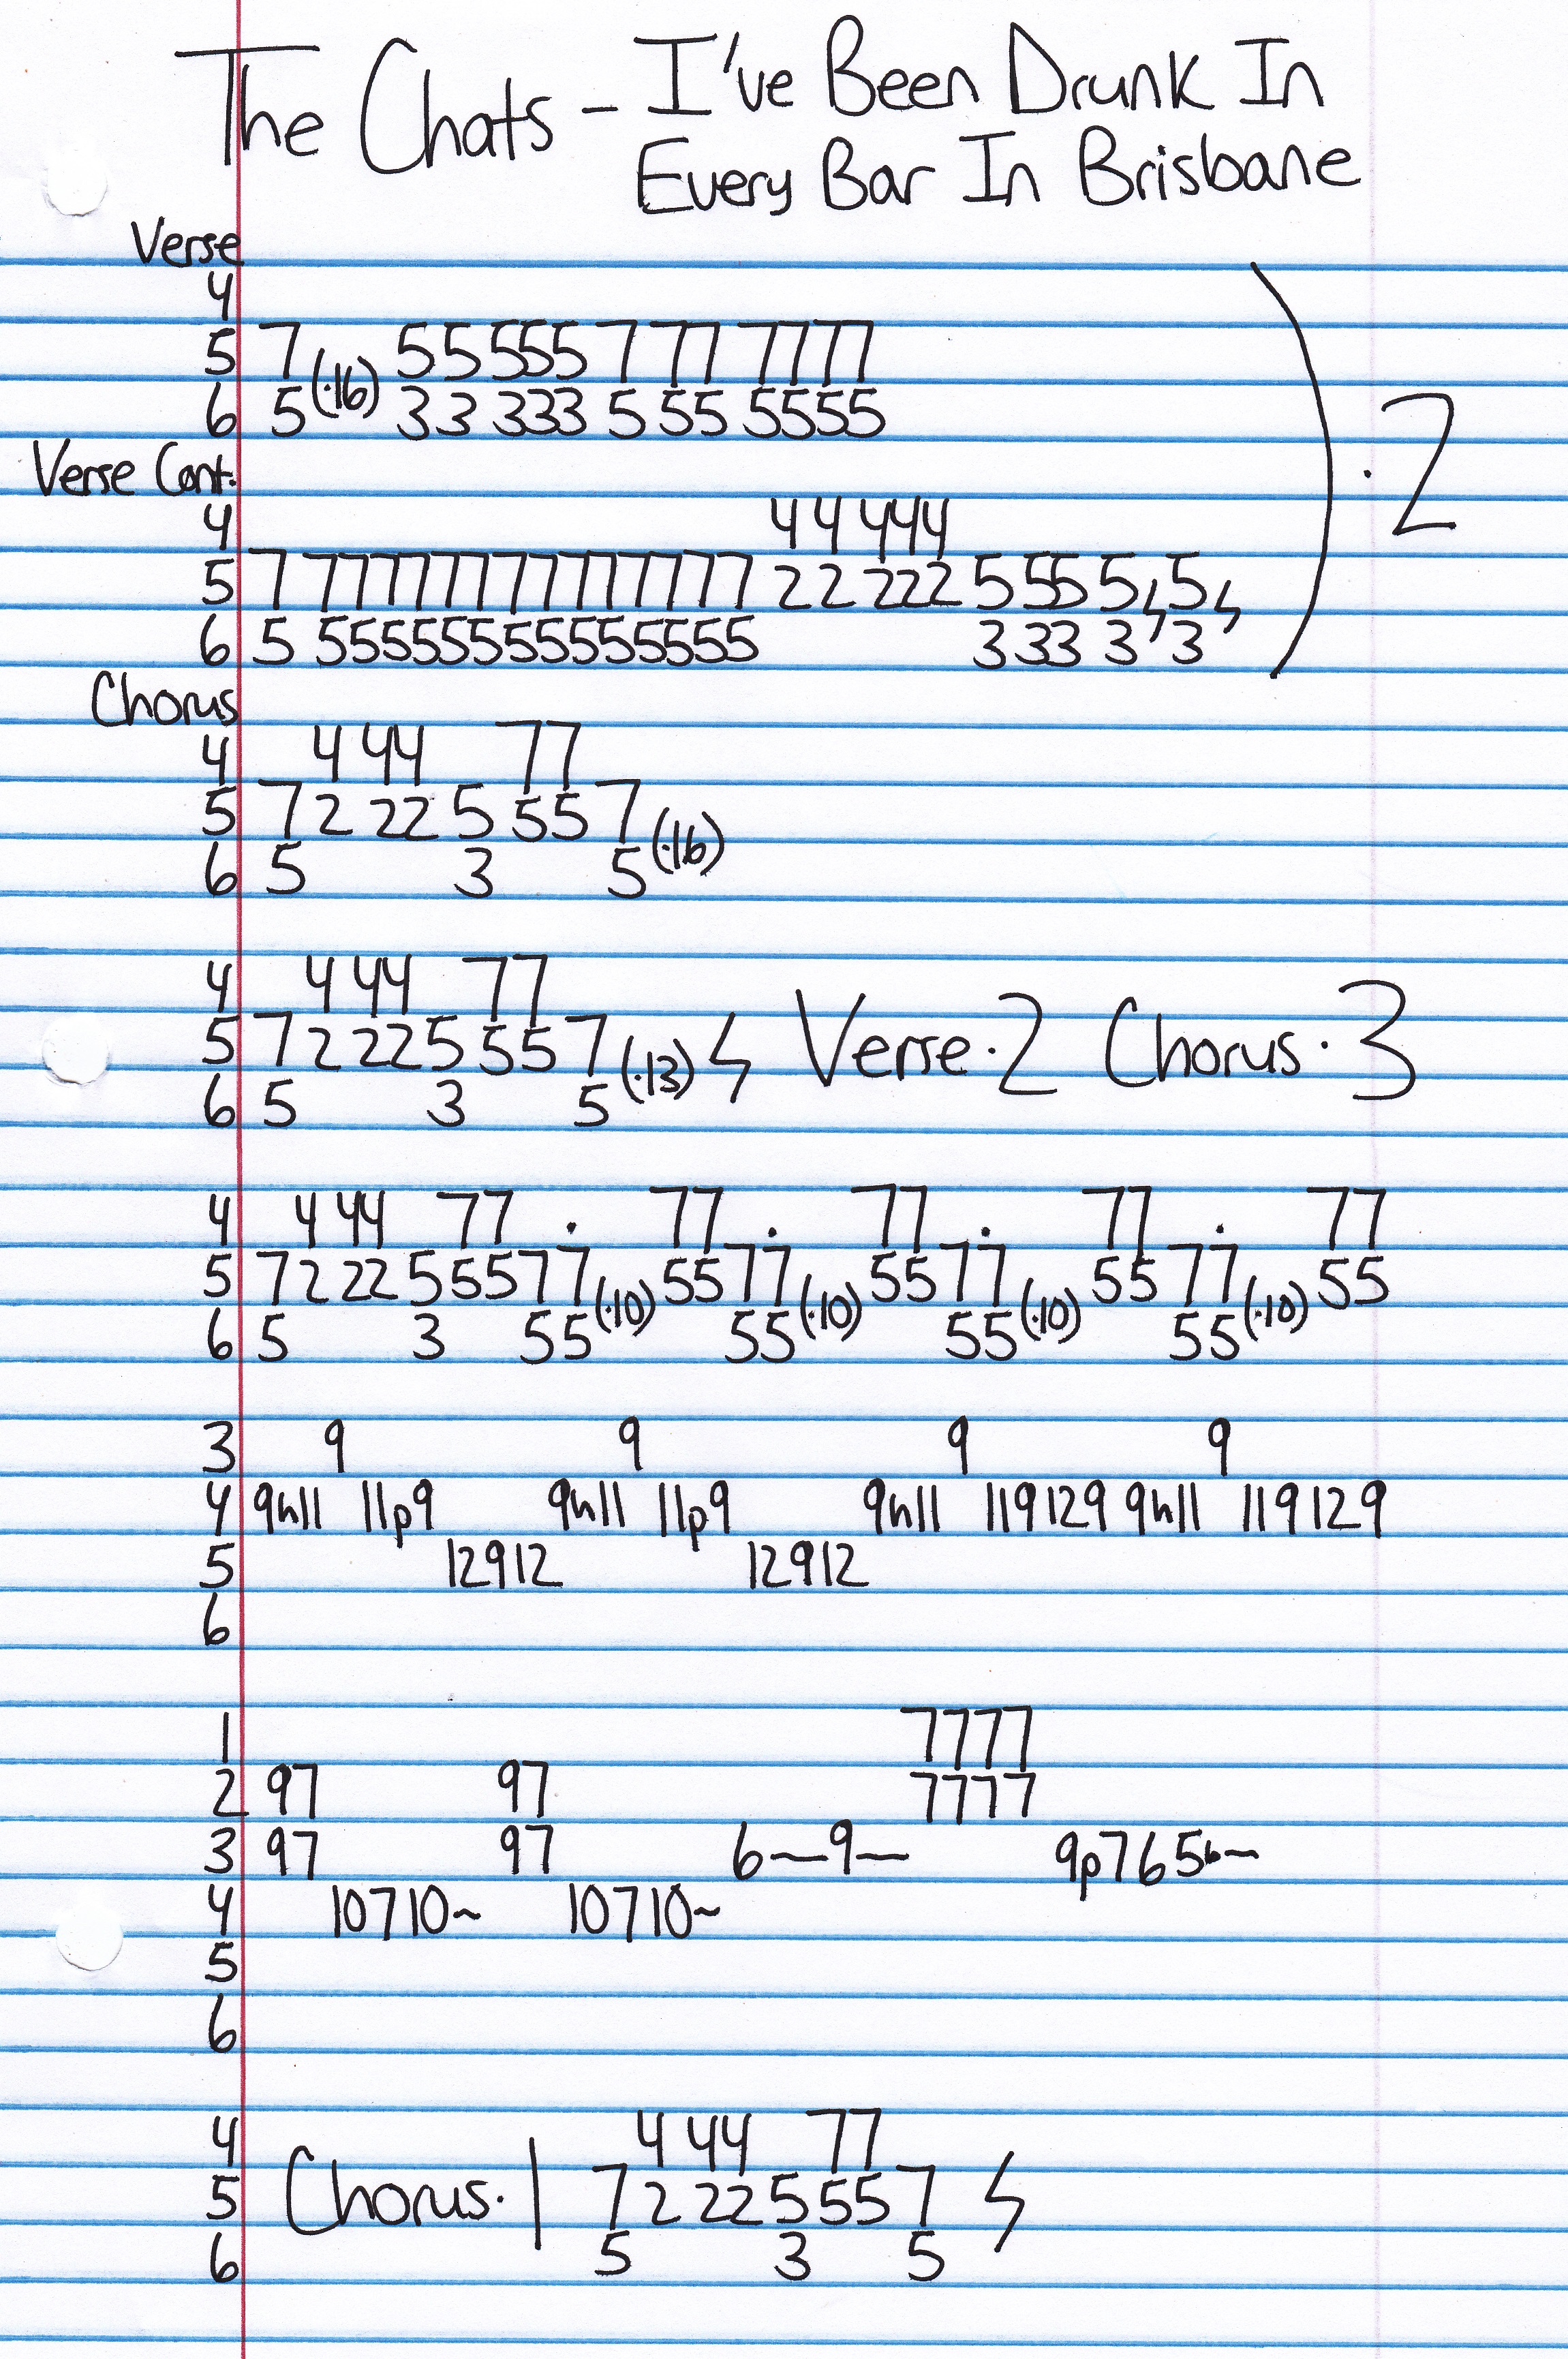 The Chats - I've Been Drunk In
Every Bar In Brisbane
Verse
4
5 7 (·16) 5 5 555 7 77 7777
6 5 3 3 333 5 55 5555
Verse Cont.
4 4 4 444
5 7 77777777777777 2 2 222 5 55 5 ϟ 5 ϟ
6 5 55555555555555 3 33 3 3
Chorus
4 4 44 77
5 7 2 22 5 55 7 (·16)
6 5 3 5
4 4 44 77
5 7 2 22 5 55 7 (·13) ϟ Verse·2 Chorus·3
6 5 3 5
4 4 44 77 . 77 . 77 . 77 . 77
5 7 2 22 5 55 77 (·10) 55 77 (·10) 55 77 (·10) 55 77 (·10) 55
6 5 3 55 55 55 55
3 9 9 9 9
4 9h11 11p9 9h11 11p9 9h11 119129 9h11 119129
5 12912 12912
6
1 7777
2 97 97 7777
3 97 97 6~9~ 9p765b~
4 10710~ 10710~
5
6
4 4 44 77
5 Chorus·1 7 2 22 5 55 7 ϟ
6 5 3 5